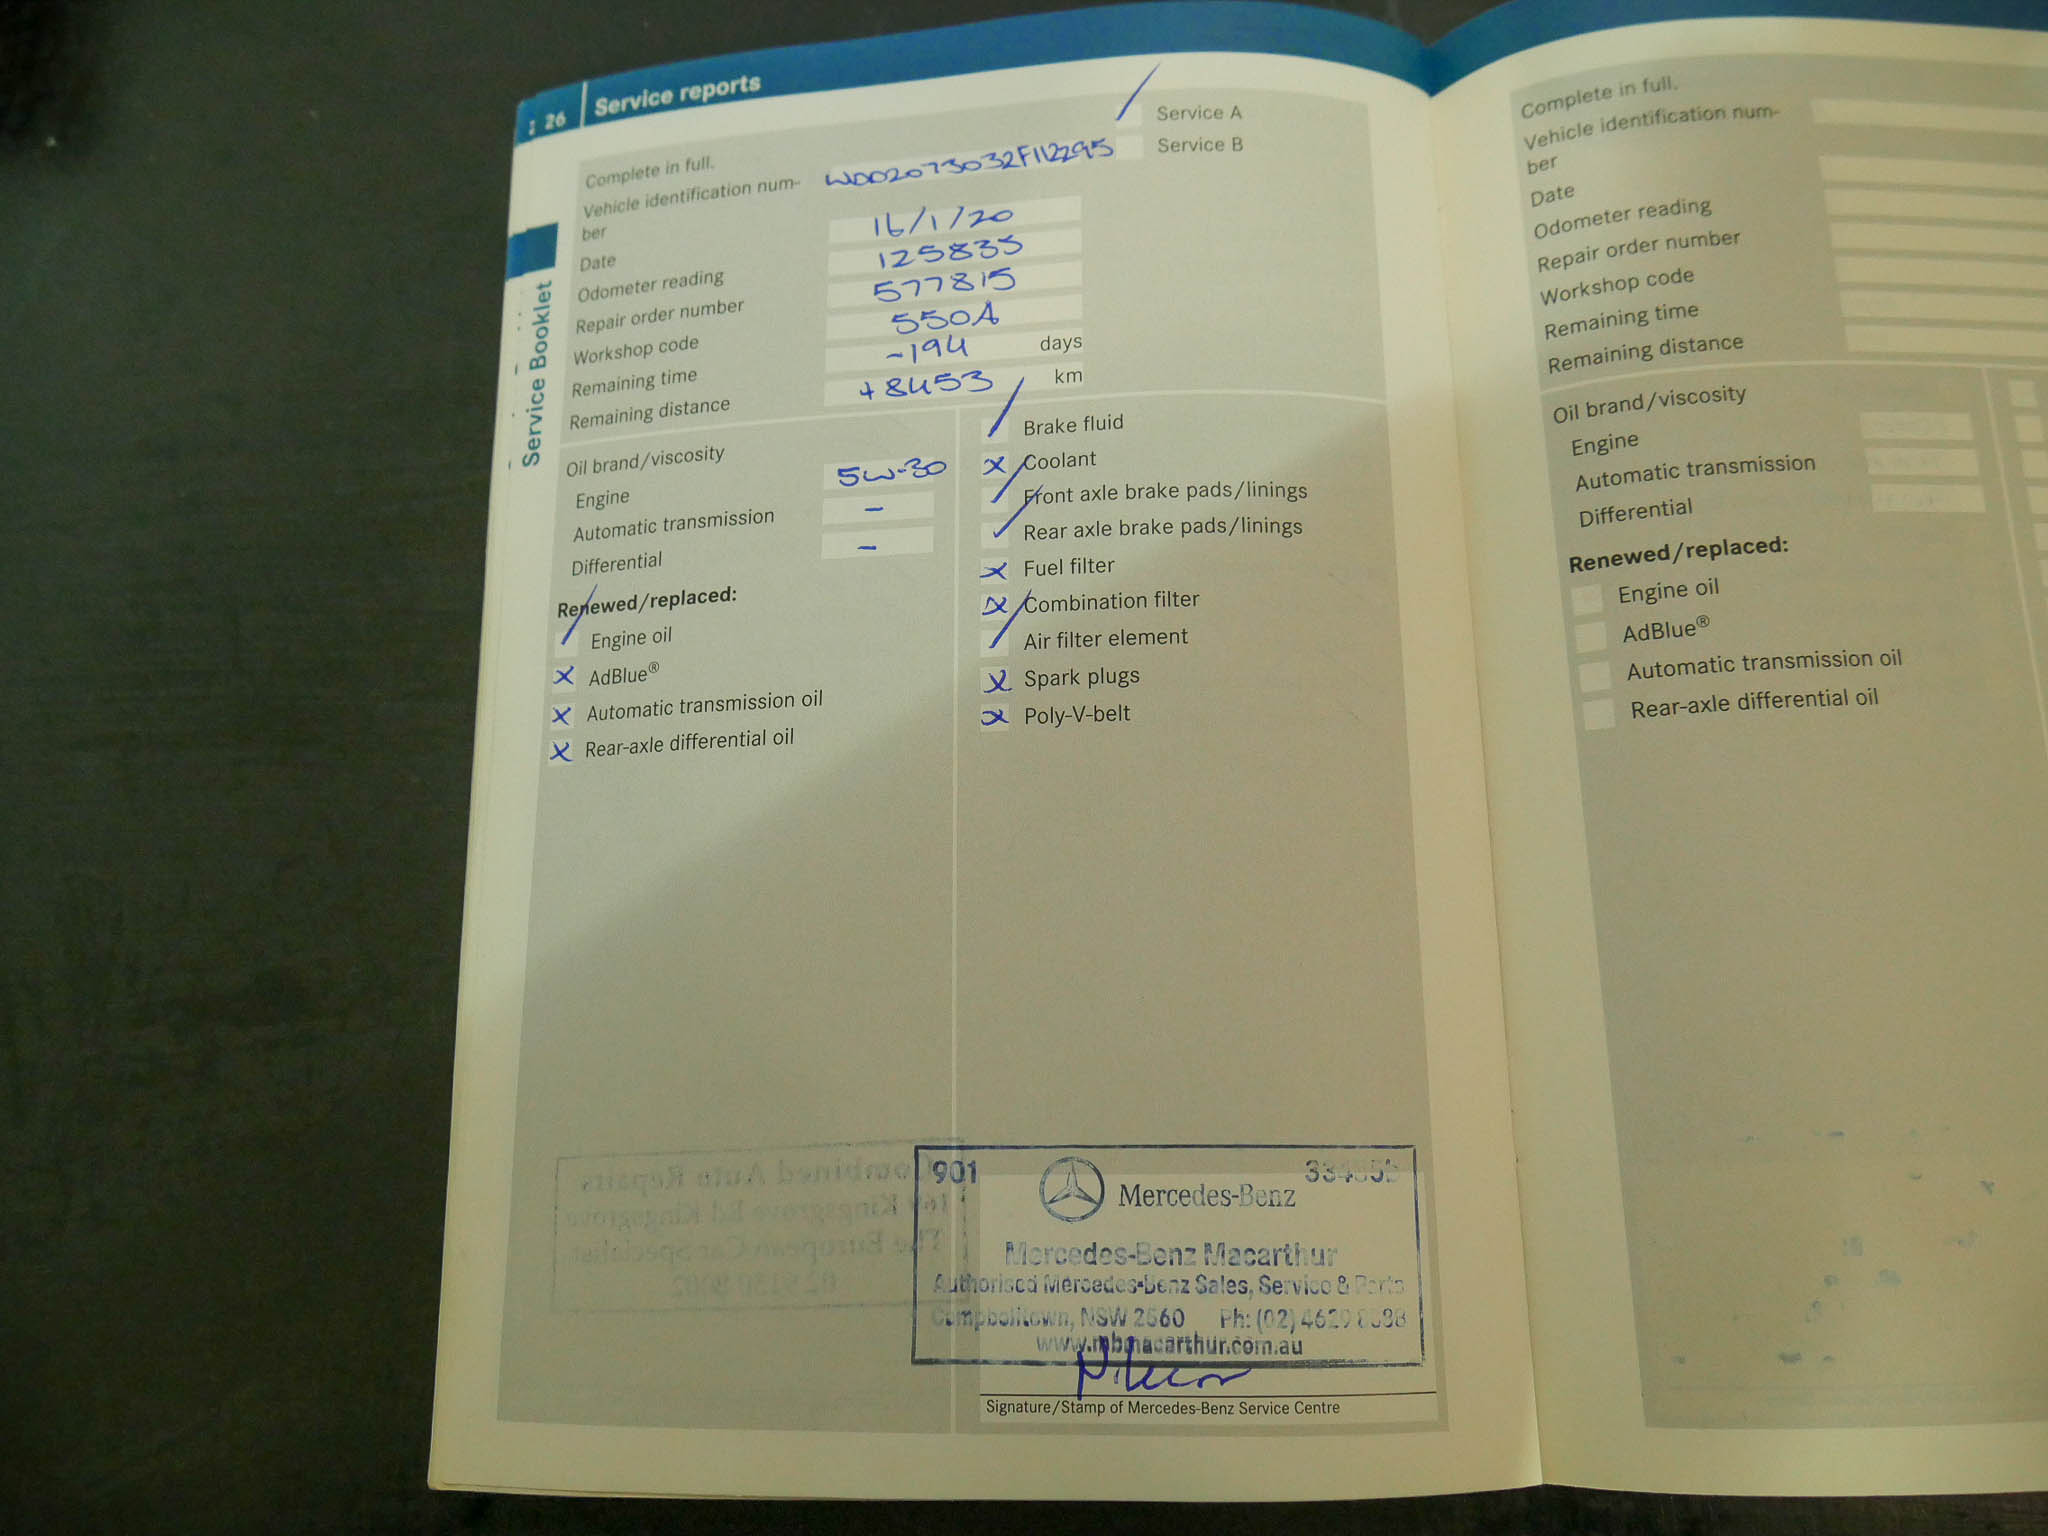 26 Service reports
Service Booklet
Complete in full.
✓ Service A
Service B
Vehicle identification num-
ber WDD2073032F112295
Date 16/1/20
Odometer reading 125835
Repair order number 577815
Workshop code 550A
Remaining time -194 days
Remaining distance +8453 km
Oil brand/viscosity
Engine 5W-30
Automatic transmission -
Differential -
Renewed/replaced:
✓ Engine oil
x AdBlue®
x Automatic transmission oil
x Rear-axle differential oil
✓ Brake fluid
x Coolant
✓ Front axle brake pads/linings
✓ Rear axle brake pads/linings
x Fuel filter
x Combination filter
✓ Air filter element
x Spark plugs
x Poly-V-belt
901
Mercedes-Benz
Mercedes-Benz Macarthur
Authorised Mercedes-Benz Sales, Service & Parts
Campbelltown, NSW 2560 Ph: (02)
www.mbmacarthur.com.au
Signature/Stamp of Mercedes-Benz Service Centre
Combined Auto Repairs
Kingsgrove Rd Kingsgrove
The European Car Specialist
Complete in full.
Vehicle identification num-
ber
Date
Odometer reading
Repair order number
Workshop code
Remaining time
Remaining distance
Oil brand/viscosity
Engine
Automatic transmission
Differential
Renewed/replaced:
Engine oil
AdBlue®
Automatic transmission oil
Rear-axle differential oil